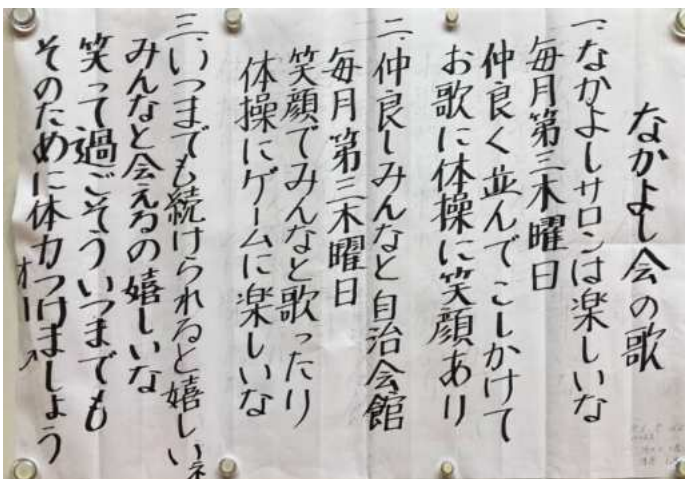 なかよし会の歌
一、なかよしサロンは楽しいな
毎月第三木曜日
仲良く並んでこしかけて
お歌に体操に笑顔あり
二、仲良しみんなと自治会館
毎月第三木曜日
笑顔でみんなと歌ったり
体操にゲームに楽しいな
三、いつまでも続けられると嬉しいネ
みんなと会えるの嬉しいな
笑って過ごそういつまでも
そのために体力つけましょう
オー